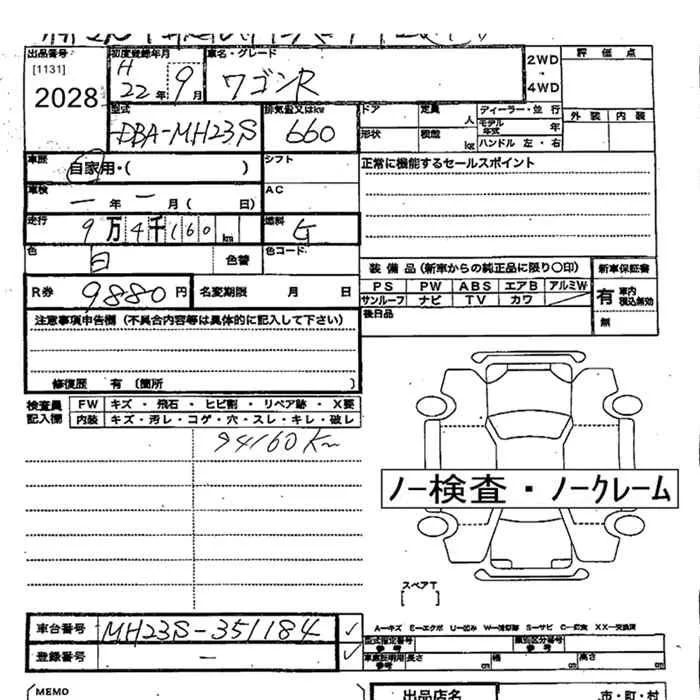 出品番号
[1131]
2028
初度登録年月
H
22年 9月
車名・グレード
ワゴンR
2WD
・
4WD
評価点
外装 内装
型式
EBA-MH23S
排気量又はkw
660
ドア
定員 人
形状
積載 kg
ディーラー・並行
モデル年式 年
ハンドル 左・右
車歴
自家用・( )
シフト
正常に機能するセールスポイント
車検
— 年 — 月( 日)
AC
走行
9万4千160km
燃料
G
色
白
色替
色コード
装備品(新車からの純正品に限り○印)
新車保証書
PS PW ABS エアB アルミW
サンルーフ ナビ TV カワ
有 車内 積込無効
無
後日品
R券
9880円
名変期限 月 日
注意事項申告欄(不具合内容等は具体的に記入して下さい)
修復歴 有 〔箇所 〕
検査員記入欄
FW キズ・飛石・ヒビ割・リペア跡・X要
内装 キズ・汚レ・コゲ・穴・スレ・キレ・破レ
94160Km
ノー検査・ノークレーム
スペアT
[ ]
車台番号
MH23S-351184
✓
登録番号
—
✓
A—キズ E—エクボ U—凹み
型式指定番号 参考
類別区分番号 参考
車庫証明用参考 長さ cm 幅 cm 高さ cm
(MEMO
出品店名
市・町・村